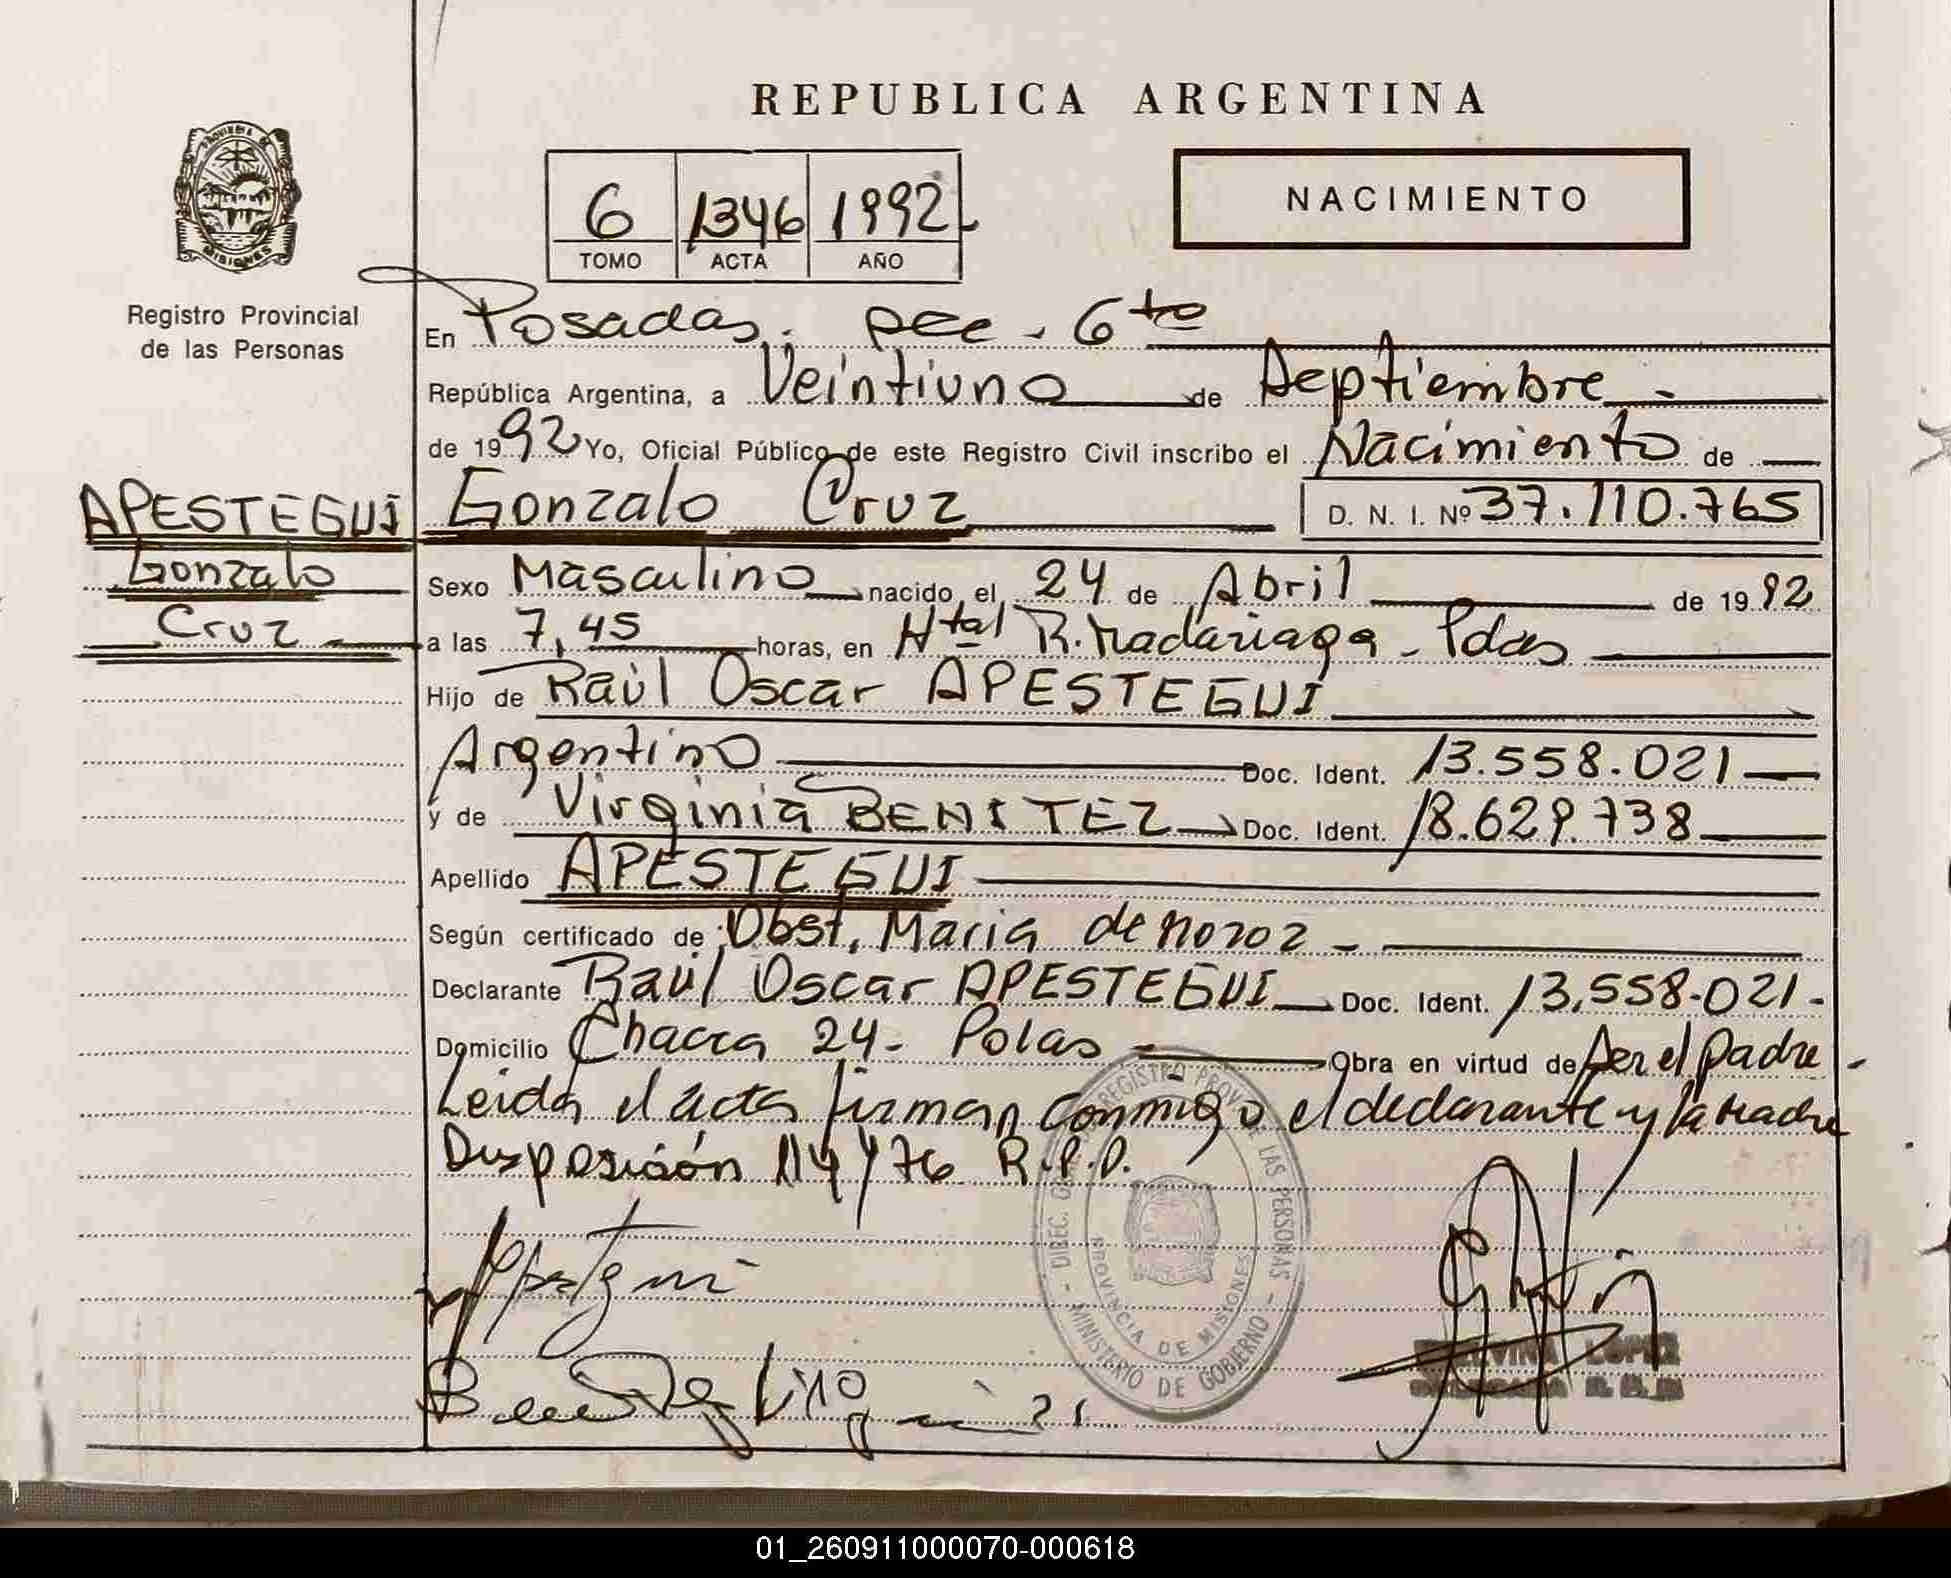 REPUBLICA ARGENTINA
PROVINCIA DE MISIONES
Registro Provincial
de las Personas
6 1346 1992
TOMO ACTA AÑO
NACIMIENTO
En Posadas. Secc. 6to
República Argentina, a Veintiuno de Septiembre
de 1992 Yo, Oficial Público de este Registro Civil inscribo el Nacimiento de
APESTEGUI
Gonzalo
Cruz
Gonzalo Cruz D. N. I. Nº 37.110.765
Sexo Masculino nacido el 24 de Abril de 1992
a las 7,45 horas, en Htal R. Madariaga - Pdas
Hijo de Raúl Oscar APESTEGUI
Argentino Doc. Ident. 13.558.021
y de Virginia BENITEZ Doc. Ident. 18.629.738
Apellido APESTEGUI
Según certificado de Obst. Maria de
Declarante Raúl Oscar APESTEGUI Doc. Ident. 13.558.021-
Domicilio Chacra 24- Pdas Obra en virtud de ser el padre -
Leida el acta firman conmigo el declarante y la madre
Disposición 114/76 R.P.P.
DIREC. REGISTRO PROV. DE LAS PERSONAS - MINISTERIO DE GOBIERNO -
PROVINCIA DE MISIONES
LOPEZ
01_260911000070-000618